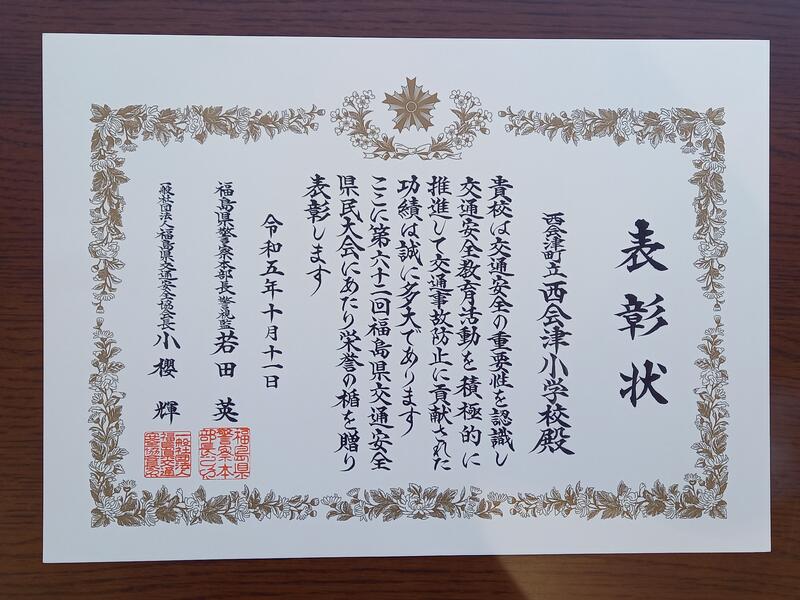 表彰状
西会津町立西会津小学校殿
貴校は交通安全の重要性を認識し
交通安全教育活動を積極的に
推進して交通事故防止に貢献された
功績は誠に多大であります
ここに第六十二回福島県交通安全
県民大会にあたり栄誉の楯を贈り
表彰します
令和五年十月十一日
福島県警察本部長警視監 若田英
一般社団法人福島県交通安全協会長 小櫻輝
福島県
警察本
部長之印
一般社団法人
福島県交通